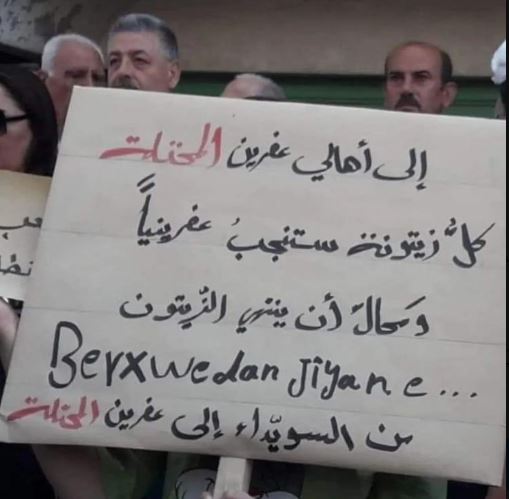 إلى أهالي عفرين المحتلة
كلُّ زيتونة ستنجبُ عفرينياً
وَمحالٌ أن ينتهي الزّيتون
Berxwedan Jîyane...
من السويّداء إلى عفرين المحتلة